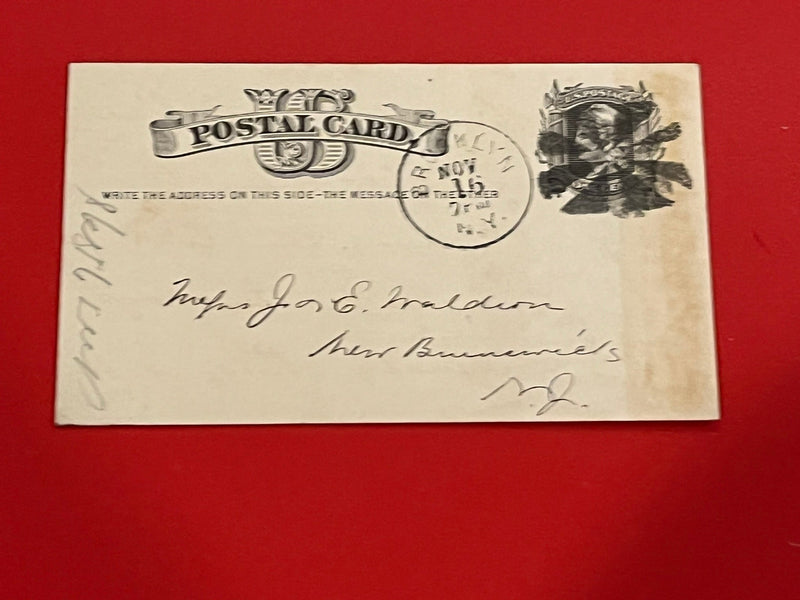 US
POSTAL CARD.
WRITE THE ADDRESS ON THIS SIDE-THE MESSAGE ON THE OTHER
BROOKLYN
NOV
16
7PM
N.Y.
U.S. POSTAGE
Messrs Jas E. Waldron
New Brunswick
N.J.